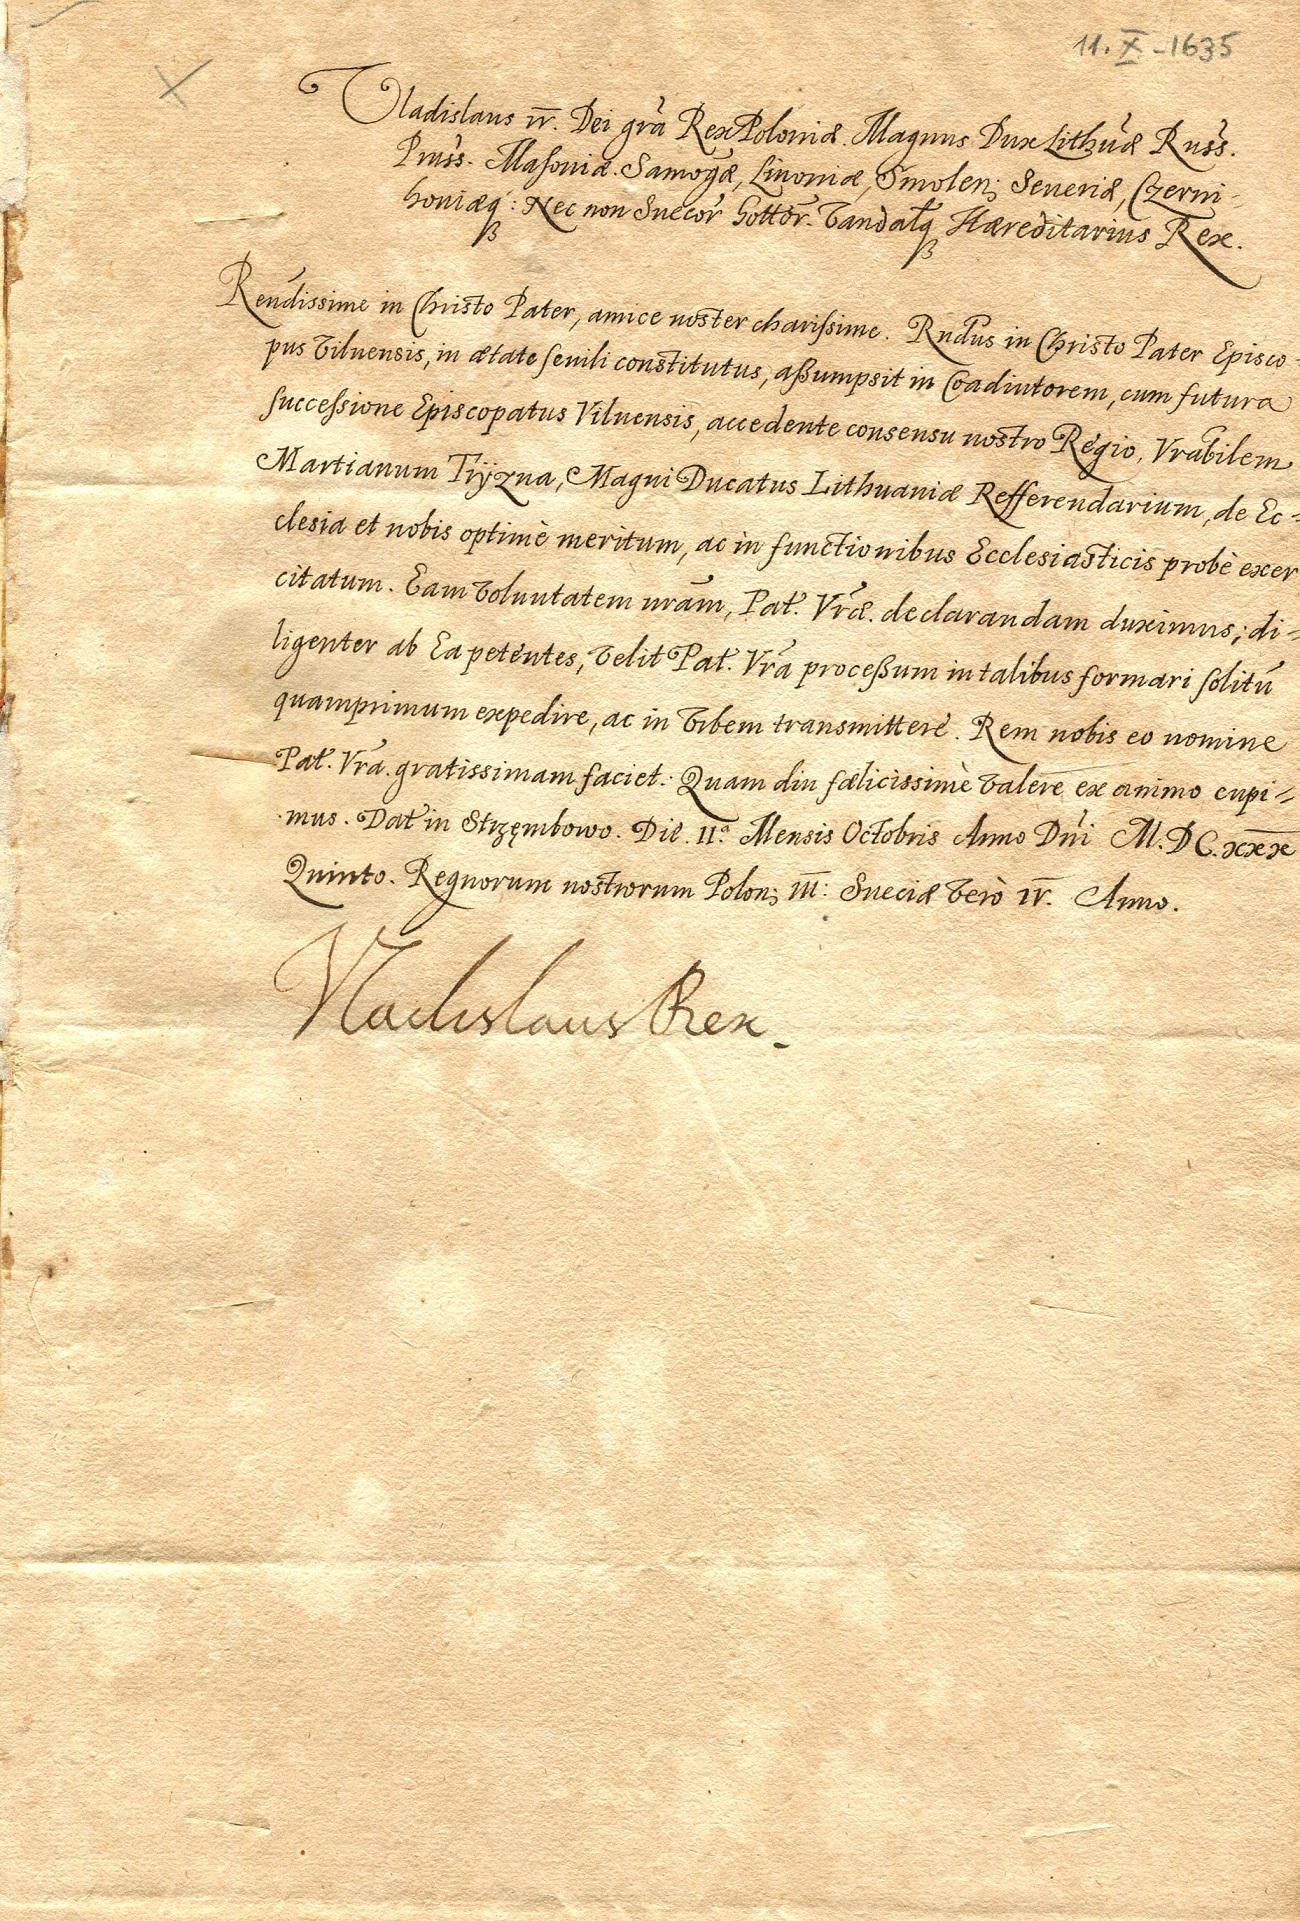 11. X - 1635
Vladislaus IV. Dei grã Rex Poloniæ. Magnus Dux Lithuæ Russ.
Pruss. Masoviæ. Samogæ, Livoniæ, Smolen; Severiæ, Czerni-
hoviæq;: Nec non Suecor Gottor. Vandalq; Hæreditarius Rex.
Rendissime in Christo Pater, amice noster charissime. Rndus in Christo Pater Episco-
pus Vilnensis, in ætate senili constitutus, assumpsit in Coadiutorem, cum futura
successione Episcopatus Vilnensis, accedente consensu nostro Regio, Vrabilem
Martianum Tryzna, Magni Ducatus Lithuaniæ Refferendarium, de Ec=
clesia et nobis optimè meritum, ac in functionibus Ecclesiasticis probè exer
citatum. Eam voluntatem nram, Pat. Vræ. declarandam duximus; di=
ligenter ab Ea petentes, velit Pat. Vra processum in talibus formari solitũ
quamprimum expedire, ac in Vrbem transmittere. Rem nobis eo nomine
Pat. Vra. gratissimam faciet. Quam diu fælicissimè valere ex animo cupi=
mus. Dat in Strzęmbowo. Die. 11ª. Mensis Octobris Anno Dni M.DC.xxx
Quinto. Regnorum nostrorum Polon; III: Sueciæ verò IV. Anno.
Vladislaus Rex.